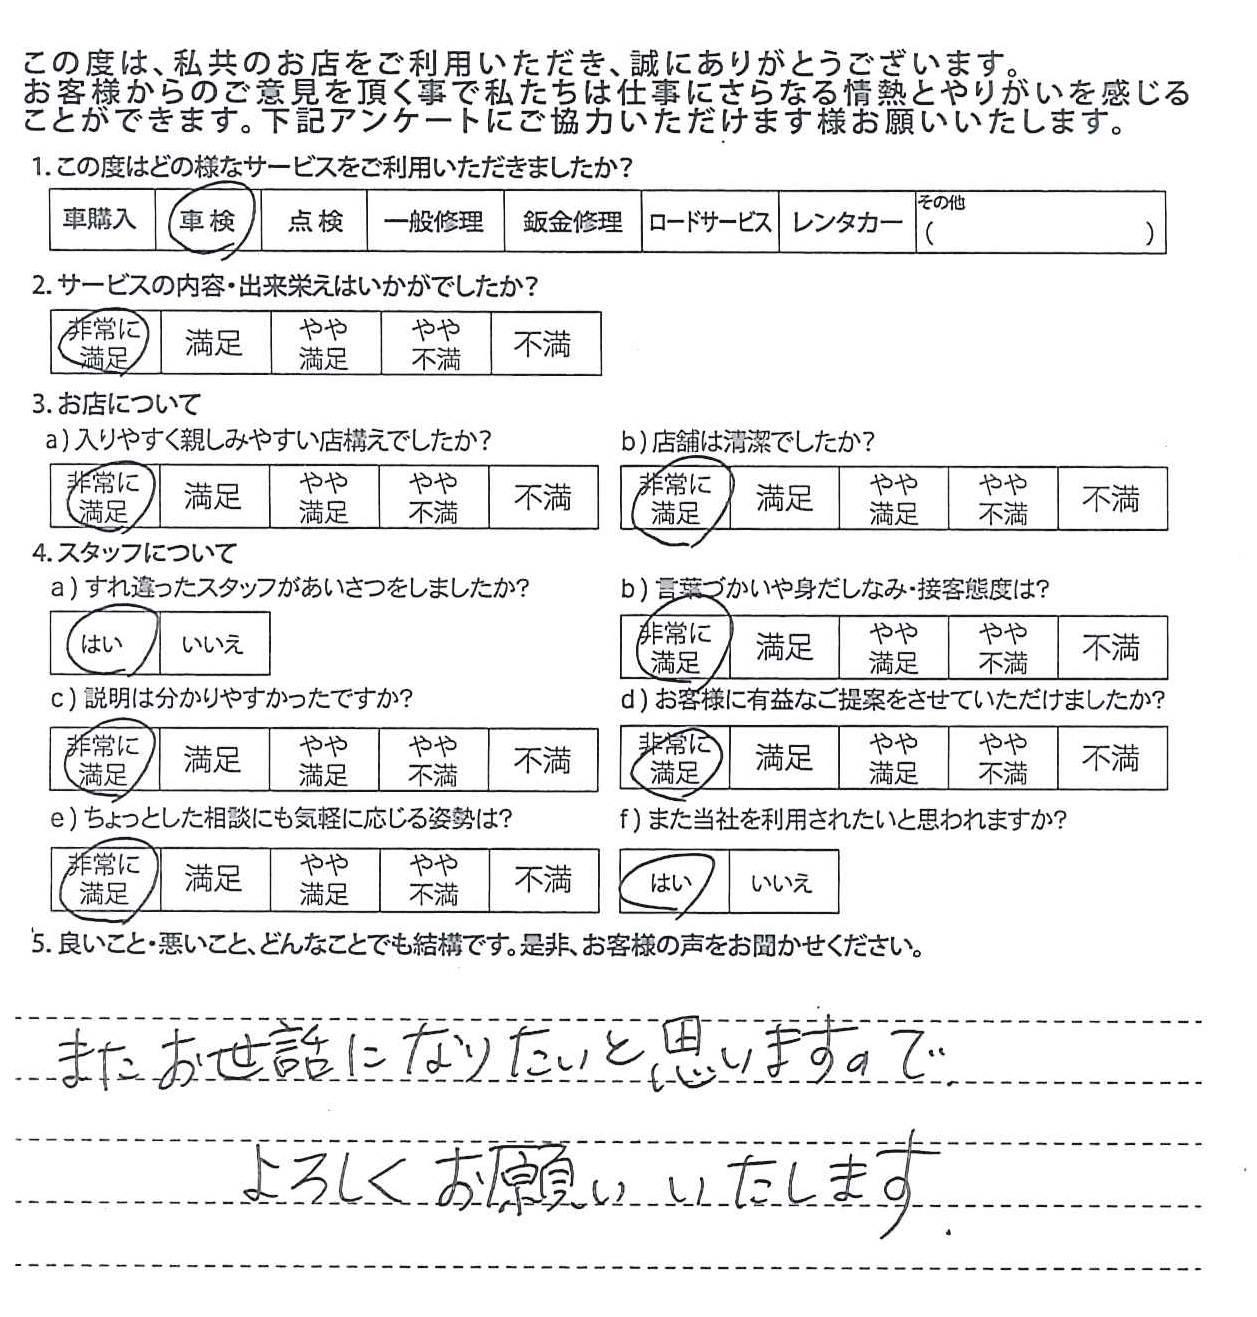 この度は、私共のお店をご利用いただき、誠にありがとうございます。
お客様からのご意見を頂く事で私たちは仕事にさらなる情熱とやりがいを感じる
ことができます。下記アンケートにご協力いただけます様お願いいたします。
1.この度はどの様なサービスをご利用いただきましたか?
車購入 車検 点検 一般修理 鈑金修理 ロードサービス レンタカー その他 ( )
2.サービスの内容・出来栄えはいかがでしたか?
非常に満足 満足 やや満足 やや不満 不満
3.お店について
a)入りやすく親しみやすい店構えでしたか?
非常に満足 満足 やや満足 やや不満 不満
b)店舗は清潔でしたか?
非常に満足 満足 やや満足 やや不満 不満
4.スタッフについて
a)すれ違ったスタッフがあいさつをしましたか?
はい いいえ
b)言葉づかいや身だしなみ・接客態度は?
非常に満足 満足 やや満足 やや不満 不満
c)説明は分かりやすかったですか?
非常に満足 満足 やや満足 やや不満 不満
d)お客様に有益なご提案をさせていただけましたか?
非常に満足 満足 やや満足 やや不満 不満
e)ちょっとした相談にも気軽に応じる姿勢は?
非常に満足 満足 やや満足 やや不満 不満
f)また当社を利用されたいと思われますか?
はい いいえ
5.良いこと・悪いこと、どんなことでも結構です。是非、お客様の声をお聞かせください。
またお世話になりたいと思いますので
よろしくお願いいたします.